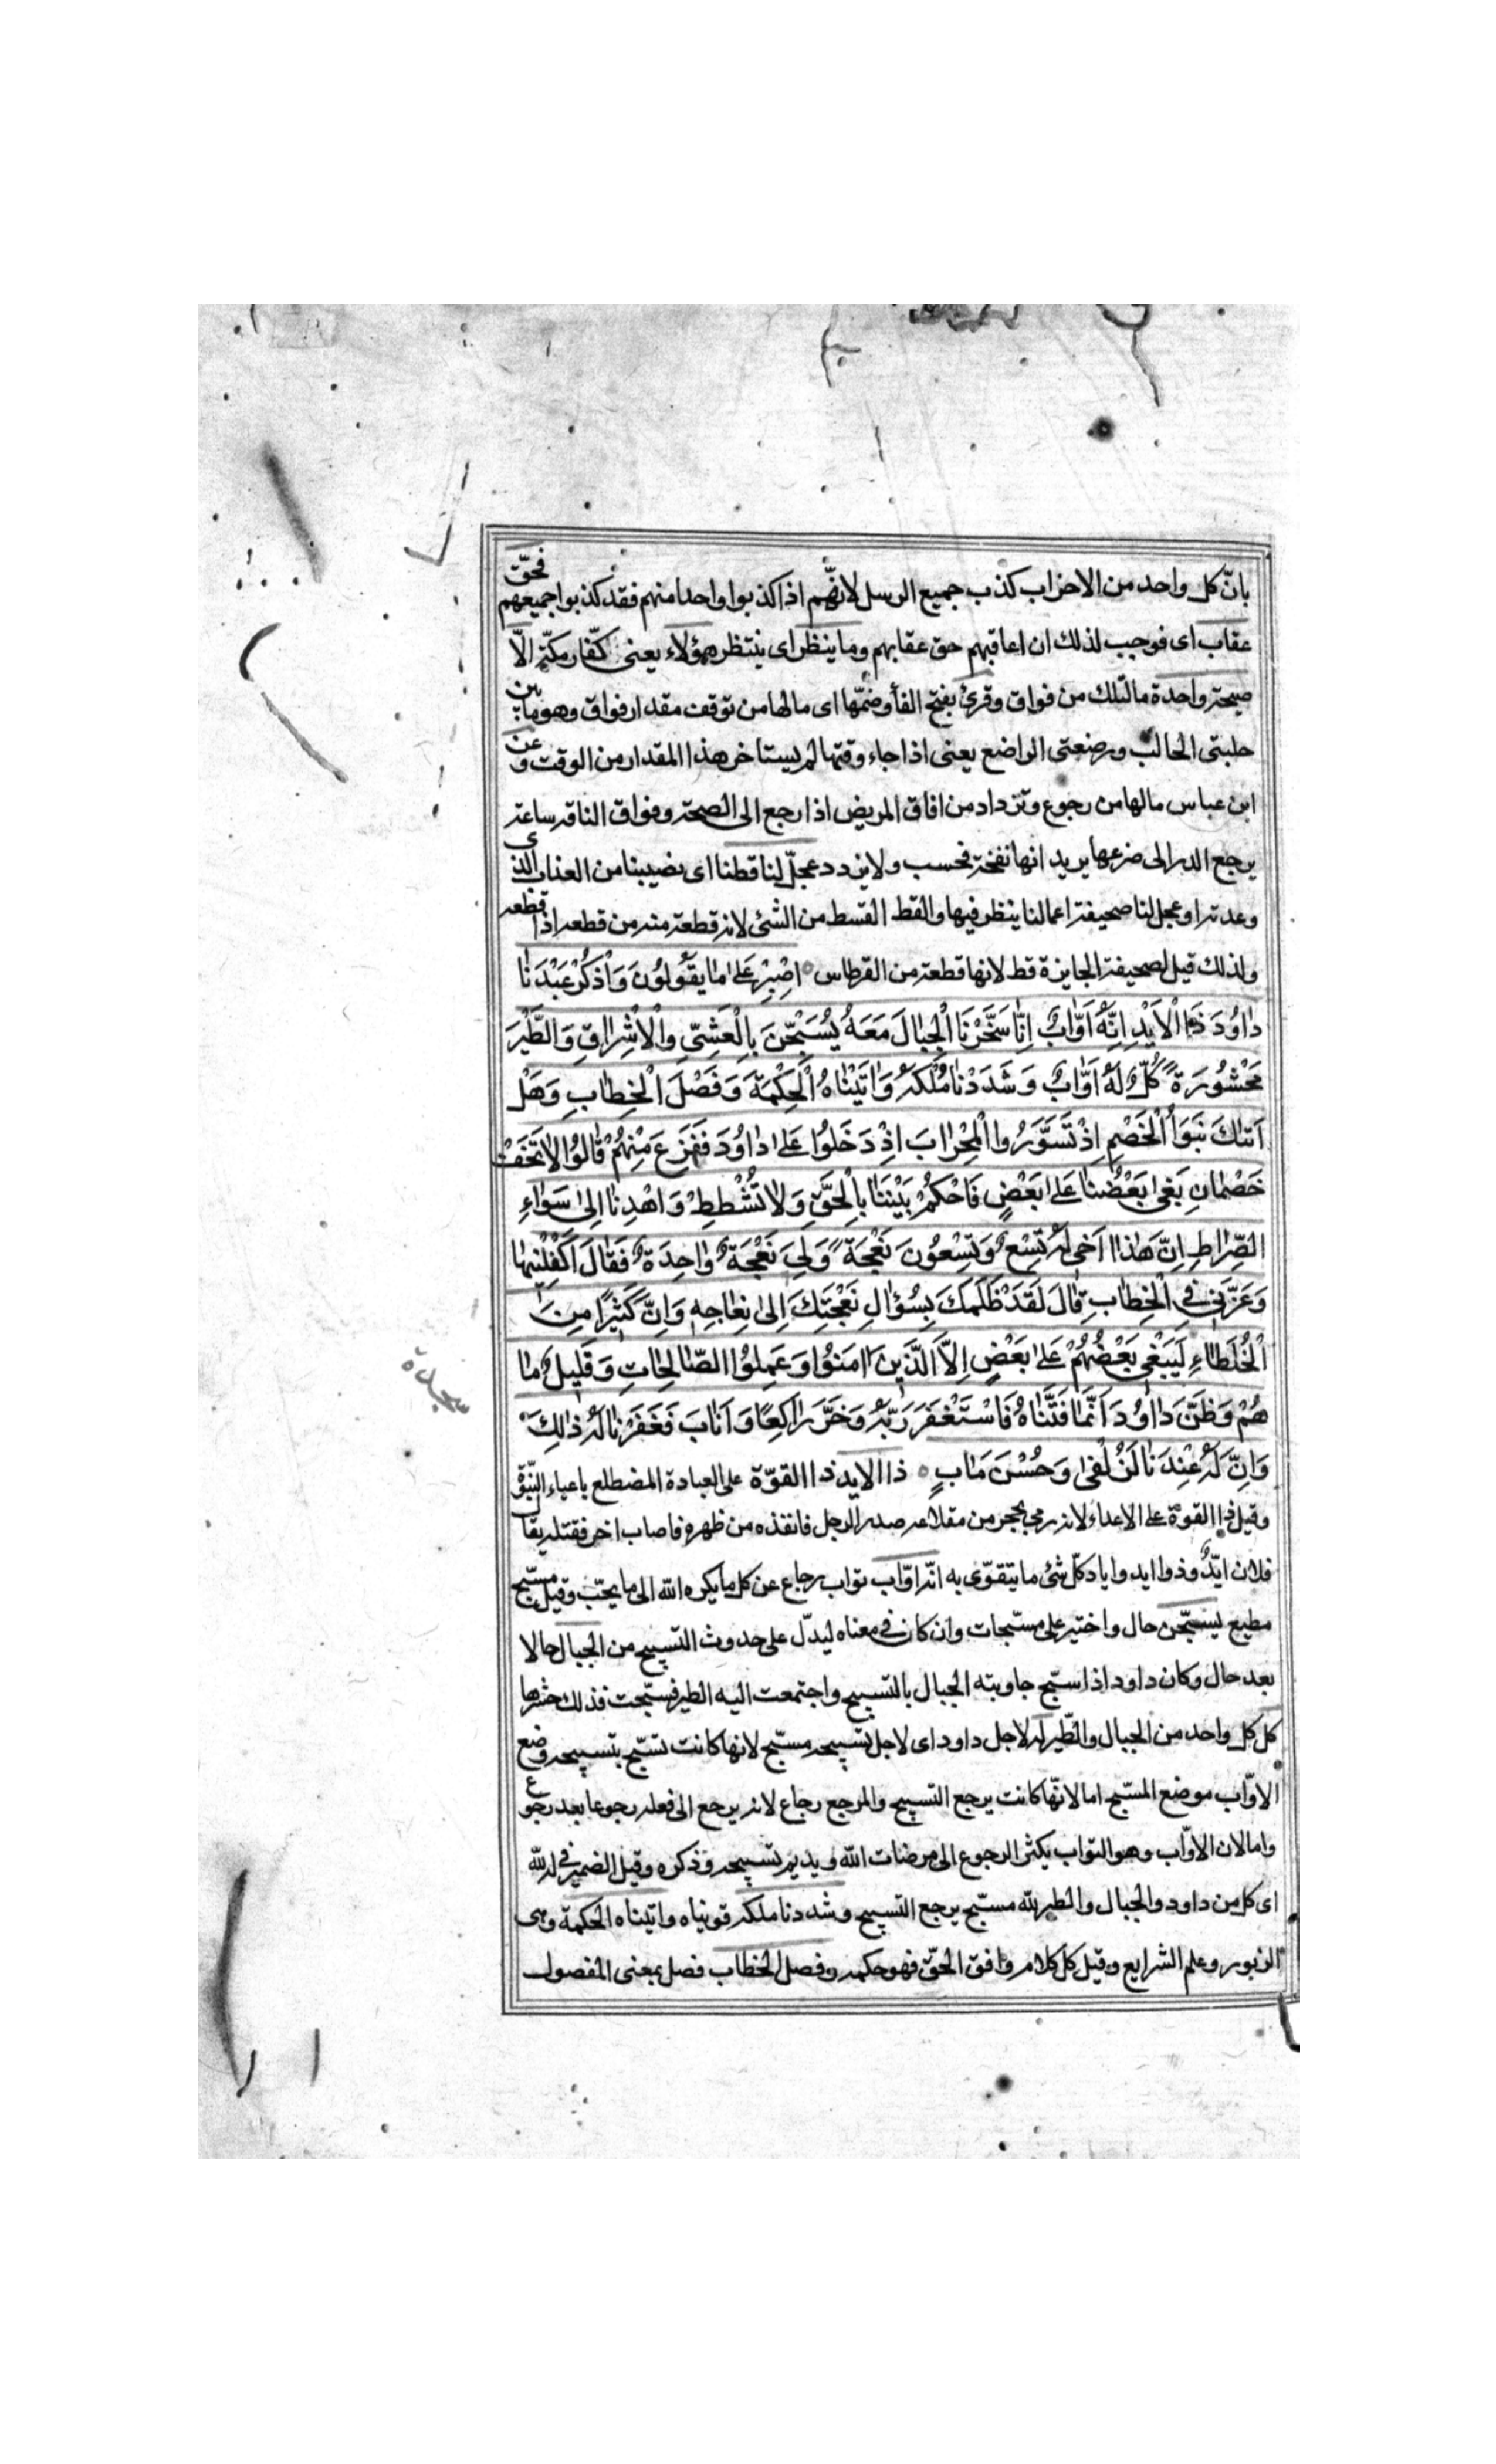 بانّ كل واحد من الاحزاب كذب جميع الرسل لانّهم اذا كذبوا واحدا منهم فقد كذبوا جميعهم فحقّ
عقاب اى فوجب لذلك ان اعاقبهم حق عقابهم وما ينظر اى ينتظر هؤلاء يعنى كفّار مكّة الّا
صيحة واحدة ما لتلك من فواق وقرئ بفتح الفأ وضمّها اى مالها من توقف مقدار فواق وهو ما بين
حلبتى الحالب ورضعتى الراضع يعنى اذا جاء وقتها لم يستاخر هذا المقدار من الوقت وعن
ابن عباس مالها من رجوع وترداد من افاق المريض اذا رجع الى الصحة وفواق الناقة ساعة
يرجع الدر الى ضرعها يريد انها نفخة فحسب ولا يردد عجلّ لنا قطنا اى نصيبنا من العذاب الذى
وعدته او عجل لنا صحيفة اعمالنا ينظر فيها والقط القسط من الشئ لانه قطعة منه من قطعه اذا قطعه
ولذلك قيل لصحيفة الجايزة قط لانها قطعة من القرطاس اِصْبِرْ عَلىٰ مٰا يَقُولُونَ وَاْذكُرْ عَبْدَنٰا
دٰاوُدَ ذَا اْلاَيْدِ اِنَّهُ اَوّٰابٌ اِنّٰا سَخَّرْنَا اْلجِبٰالَ مَعَهُ يُسَبِّحْنَ بِالْعَشِىِّ وَاْلاِشْرٰاقِ وَالطَّيْرَ
مَحْشُورَةً كُلٌّ لَهُ اَوّٰابٌ وَشَدَدْنٰا مُلْكَهُ وَاٰتَيْنٰاهُ اْلحِكْمَةَ وَفَصْلَ اْلخِطٰابِ وَهَلْ
اَتٰىكَ نَبَؤُا اْلخَصْمِ اِذْ تَسَوَّرُوا اْلمِحْرٰابَ اِذْ دَخَلُوا عَلىٰ دٰاوُدَ فَفَزِعَ مِنْهُمْ قٰالُوا لاٰ تَخَفْ
خَصْمٰانِ بَغىٰ بَعْضُنٰا عَلىٰ بَعْضٍ فَاحْكُمْ بَيْنَنٰا بِالْحَقِّ وَلاٰ تُشْطِطْ وَاهْدِنٰا اِلىٰ سَوٰاءِ
الصِّرٰاطِ اِنَّ هٰذٰا اَخى لَهُ تِسْعٌ وَتِسْعُونَ نَعْجَةً وَلِىَ نَعْجَةٌ وٰاحِدَةٌ فَقٰالَ اَكْفِلْنيهٰا
وَعَزَّنى فِى اْلخِطٰابِ قٰالَ لَقَدْ ظَلَمَكَ بِسُؤٰالِ نَعْجَتِكَ اِلىٰ نِعٰاجِهِ وَاِنَّ كَثيرًا مِنَ
اْلخُلَطٰاءِ لَيَبْغى بَعْضُهُمْ عَلىٰ بَعْضٍ اِلاَّ الَّذينَ اٰمَنُوا وَعَمِلُوا الصّٰالِحٰاتِ وَقَليلٌ مٰا
هُمْ وَظَنَّ دٰاوُدُ اَنَّمٰا فَتَنّٰاهُ فَاسْتَغْفَرَ رَبَّهُ وَخَرَّ رٰاكِعًا وَاَنٰابَ فَغَفَرْنٰا لَهُ ذٰلِكَ
وَاِنَّ لَهُ عِنْدَنٰا لَزُلْفىٰ وَحُسْنَ مَاٰبٍ ذا الايد ذا القوّة على العبادة المضطلع باعباء النبّوة
وقيل ذا القوة على الاعداء لانه رمى بحجر من مقلاعه صدر الرجل فانفذه من ظهره فاصاب اخر فقتله يقال
فلان ايّدٌ وذو ايد واياد كلّ شئ ما يتقوّى به انّه اوّاب تواب رجاع عن كل ما يكره الله الى ما يحّب وقيل مسبّح
مطيع يسبّحن حال واختير على مسبّحات وان كان فى معناه ليدلّ على حدوث التسبيح من الجبال حالا
بعد حال وكان داود اذا سبّح جاوبته الجبال بالتسبيح واجتمعت اليه الطير فسبّحت فذلك حشرها
كل كل واحد من الجبال والطّير له لاجل داود اى لاجل تسبيحه مسبّح لانها كانت تسبّح بتسبيحه وضع
الاوّاب موضع المسبّح اما لانّها كانت يرجع التسبيح والمرجع رجاع لانه يرجع الى فعله رجوعا بعد رجوع
واما لان الاوّاب وهو التواب يكثر الرجوع الى مرضات الله ويديم تسبيحه وذكره وقيل الضمير فى له لله
اى كل من داود والجبال والطير لله مسبّح يرجع التسبيح وشددنا ملكه قويناه واتيناه الحكمة وهى
الزبور وعلم الشرايع وقيل كل كلام وافق الحقّ فهو حكمه وفصل الخطاب فصل بمعنى المفصول
سجدة